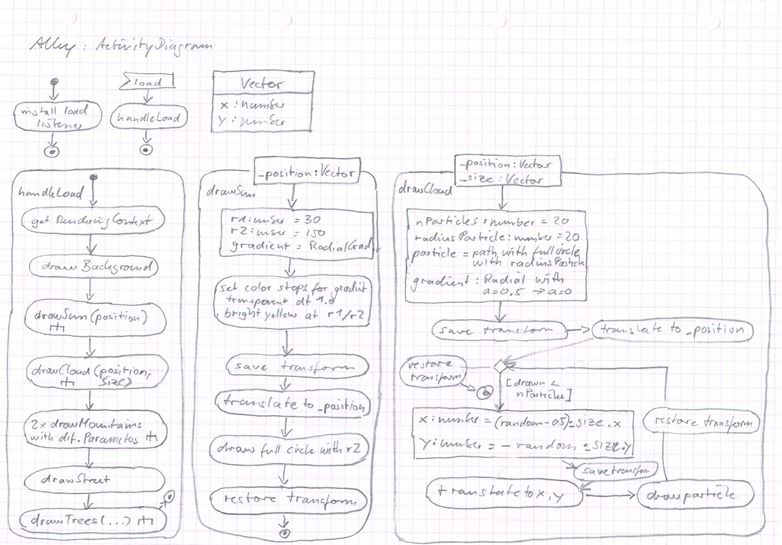 Alley: ActivityDiagram
install load
listener
load
handleLoad
Vector
x: number
y: number
handleLoad
getRenderingContext
drawBackground
drawSun(position)
drawCloud(position,
size)
2x drawMountains
with dif. Parametes
drawStreet
drawTrees(...)
_position: Vector
drawSun
r1: number = 30
r2: number = 150
gradient = RadialGrad.
set color stops for gradient
transparent at 1.0
bright yellow at r1/r2
save transform
translate to _position
draw full circle with r2
restore transform
_position: Vector
_size: Vector
drawCloud
nParticles: number = 20
radiusParticle: number = 20
particle = path with full circle
with radiusParticle
gradient: Radial with
a=0.5 → a=0
save transform
translate to _position
restore
transform
[drawn <
nParticles]
x: number = (random-0.5)*size.x
y: number = - random * size.y
restore transform
save transform
translate to x,y
draw particle